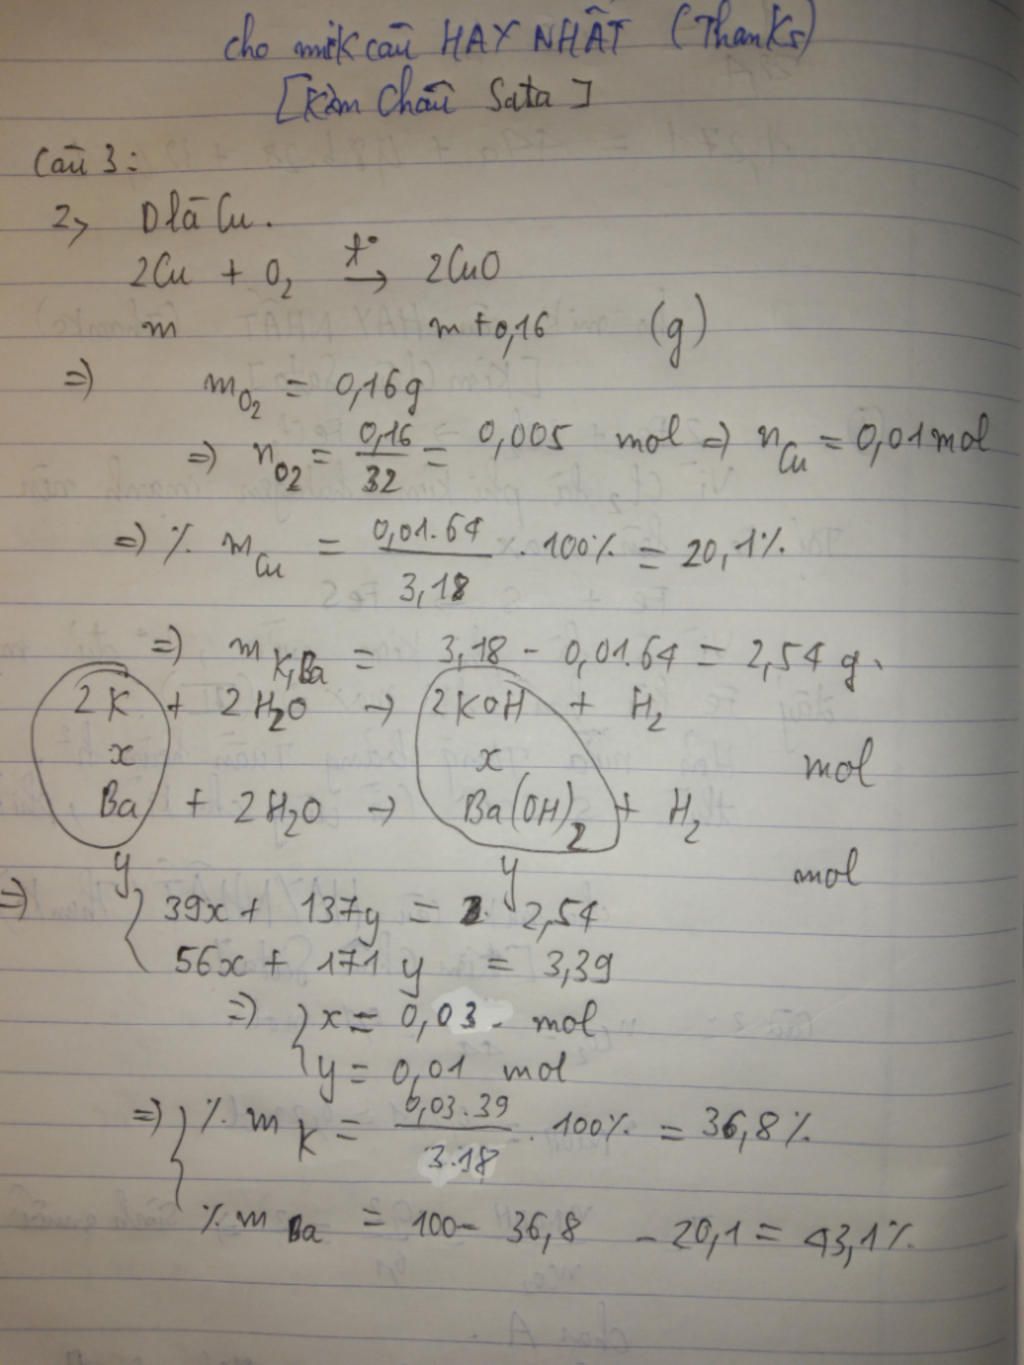 cho mik câu HAY NHẤT (Thanks)
[Kim Châu Sata]
Câu 3:
2, D là Cu.
2Cu + O₂ —t°→ 2CuO
m m + 0,16 (g)
=> m O₂ = 0,16g
=> n O₂ = 0,16/32 = 0,005 mol => n Cu = 0,01 mol
=> % m Cu = 0,01.64/3,18 . 100% = 20,1%.
=> m K,Ba = 3,18 - 0,01.64 = 2,54 g.
2K + 2H₂O → 2KOH + H₂
x x mol
Ba + 2H₂O → Ba(OH)₂ + H₂
y y mol
=> { 39x + 137y = 2,54
56x + 171y = 3,39
=> { x = 0,03 mol
y = 0,01 mol
=> { % m K = 0,03.39/3.18 . 100% = 36,8%
% m Ba = 100 - 36,8 - 20,1 = 43,1%.